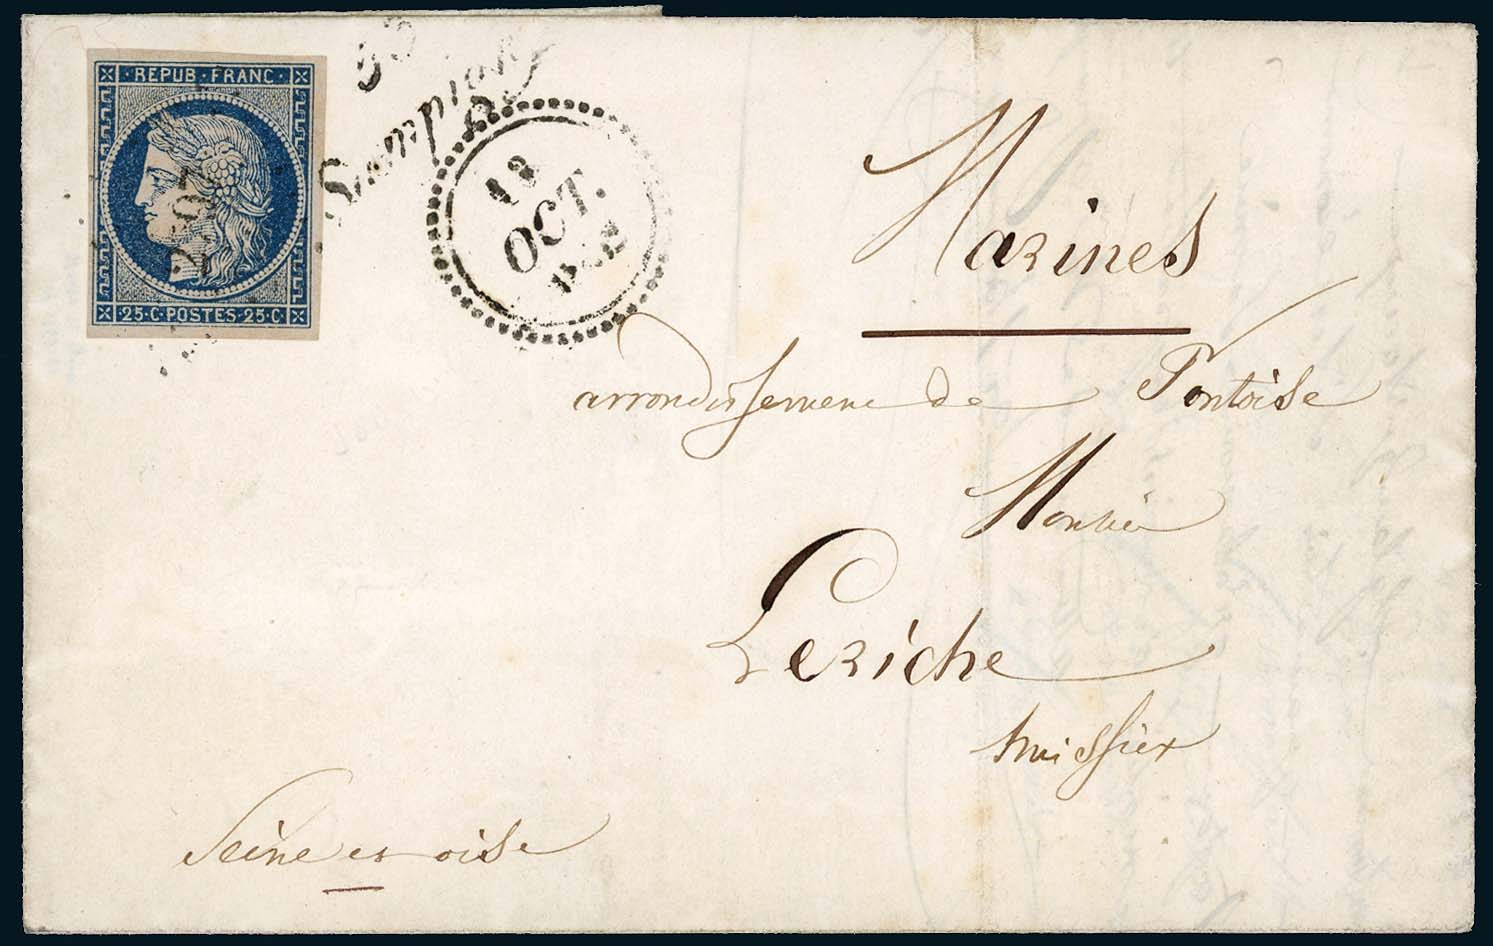 REPUB·FRANC·
25·C·POSTES·25·C·
55
Dampierre
OCT.
Marines
arrondissement de Pontoise
Monsieur
Leriche
huissier
Seine et oise